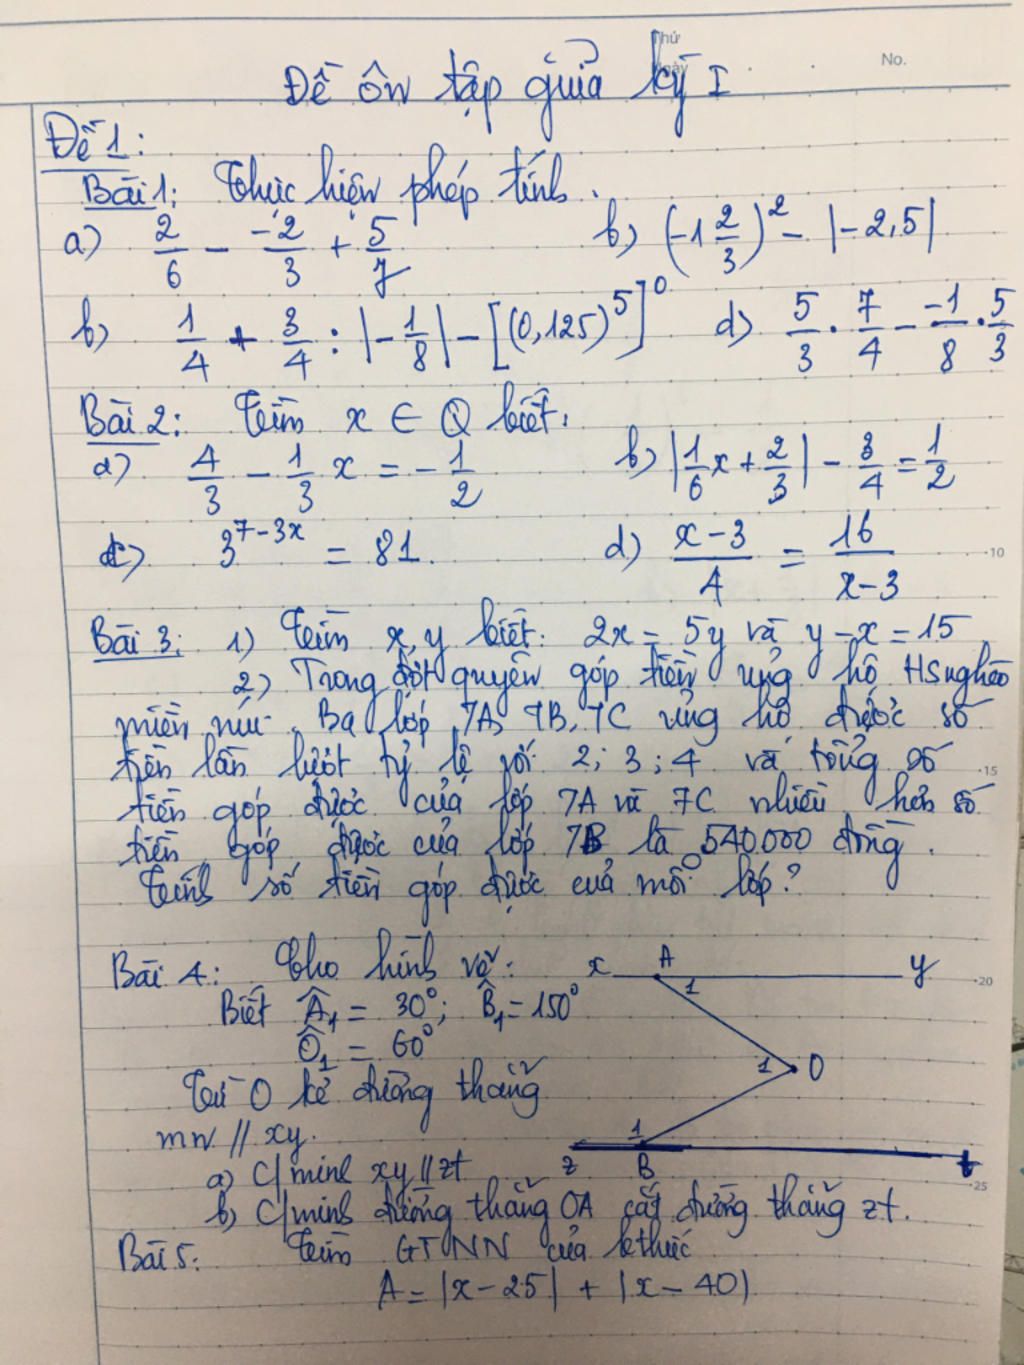 Thứ
Ngày
No.
Đề ôn tập giữa kỳ I
Đề 1:
Bài 1: Thực hiện phép tính.
a) 2/6 - -2/3 + 5/7 b) (-1 2/3)² - |-2,5|
b) 1/4 + 3/4 : |-1/8| - [(0,125)⁵]⁰ d) 5/3 . 7/4 - -1/8 . 5/3
Bài 2: Tìm x ∈ Q biết:
a) 4/3 - 1/3 x = -1/2 b) |1/6 x + 2/3| - 3/4 = 1/2
c) 3^(7-3x) = 81. d) (x-3)/4 = 16/(x-3)
10
Bài 3: 1) Tìm x, y biết: 2x = 5y và y - x = 15
2) Trong đợt quyên góp tiền ủng hộ HS nghèo
miền núi. Ba lớp 7A, 7B, 7C ủng hộ được số
tiền lần lượt tỷ lệ với 2; 3; 4 và tổng số
15
tiền góp được của lớp 7A và 7C nhiều hơn số
tiền góp được của lớp 7B là 540.000 đồng.
Tính số tiền góp được của mỗi lớp?
Bài 4: Cho hình vẽ: x A y
1
20
Biết Â₁ = 30°; B̂₁ = 150°
Ô₁ = 60°
1 O
Từ O kẻ đường thẳng
mn // xy.
1
z B t
a) C/minh xy // zt
25
b) C/minh đường thẳng OA cắt đường thẳng zt.
Bài 5: Tìm GTNN của bthức
A = |x - 25| + |x - 40|